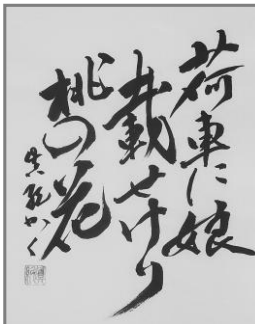 荷車に娘
載せけり
桃の花
かく